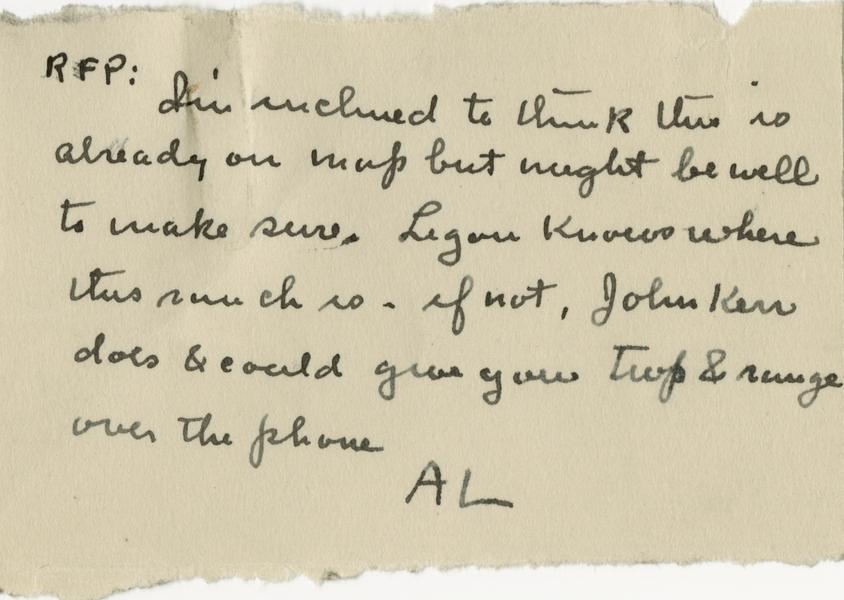 RFP:
I'm inclined to think this is
already on map but might be well
to make sure. Ligon Knows where
this ranch is - if not, John Kerr
does & could give you Twp & range
over the phone
AL